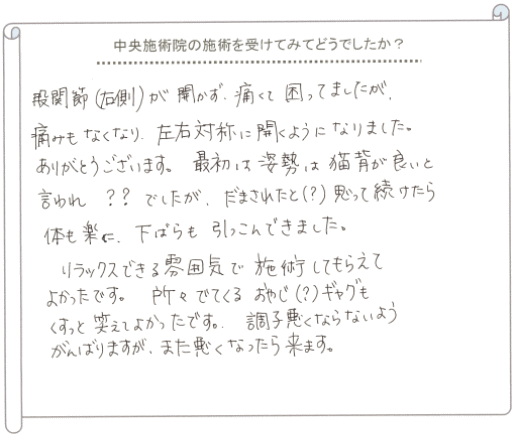 中央施術院の施術を受けてみてどうでしたか？
股関節(右側)が開かず、痛くて困ってましたが、
痛みもなくなり、左右対称に開くようになりました。
ありがとうございます。最初は姿勢は猫背が良いと
言われ ？？でしたが、だまされたと(？)思って続けたら
体も楽に、下ばらも引っこんできました。
リラックスできる雰囲気で施術してもらえて
よかったです。所々でてくるおやじ(？)ギャグも
くすっと笑えてよかったです。調子悪くならないよう
がんばりますが、また悪くなったら来ます。